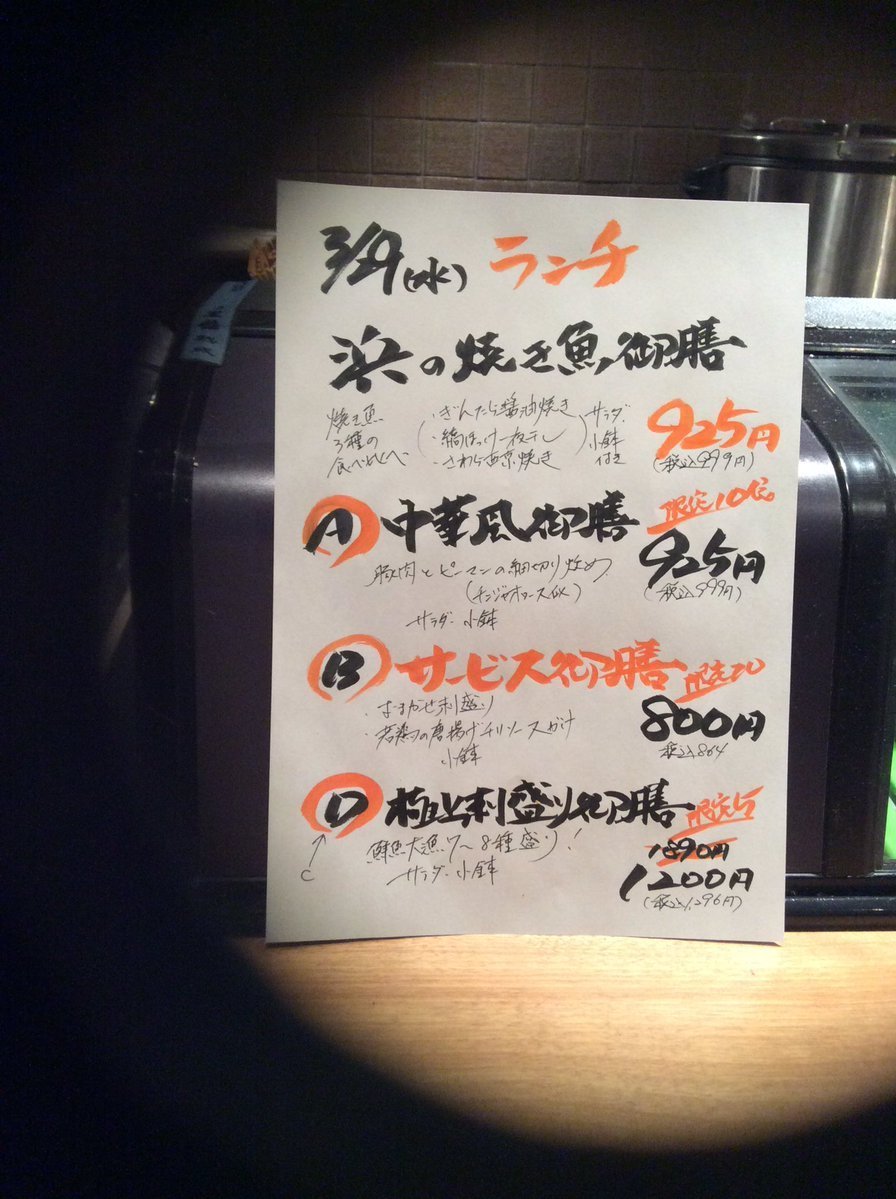 3/29(水) ランチ
浜の焼き魚御膳
焼き魚
3種の
食べ比べ
・ぎんたら醤油焼き
・縞ほっけ一夜干し
・さわら西京焼き
サラダ
小鉢
付き
925円
(税込999円)
A 中華風御膳
限定10食
豚肉とピーマンの細切り炒め
(チンジャオロース風)
サラダ・小鉢
925円
(税込999円)
B サービス御膳
限定20
・おまかせ刺盛り
・若鶏の唐揚げチリソースがけ
小鉢
800円
税込864
D 極上刺盛り御膳
限定5
C
鮮魚大漁7〜8種盛り!
サラダ・小鉢
1890円
1200円
(税込1,296円)